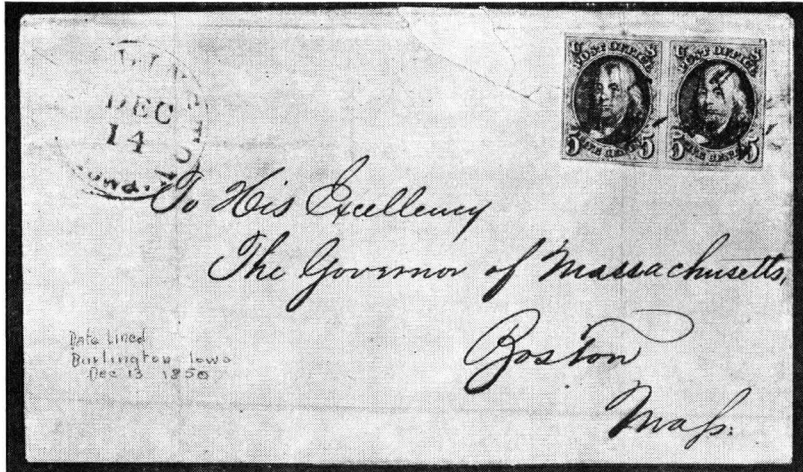 DEC
14
POST OFFICE
FIVE CENTS
5 5
POST OFFICE
FIVE CENTS
5 5
To His Excellency
The Governor of Massachusetts,
Boston
Mass:
Date lined
Burlington Iowa
Dec 13 1850